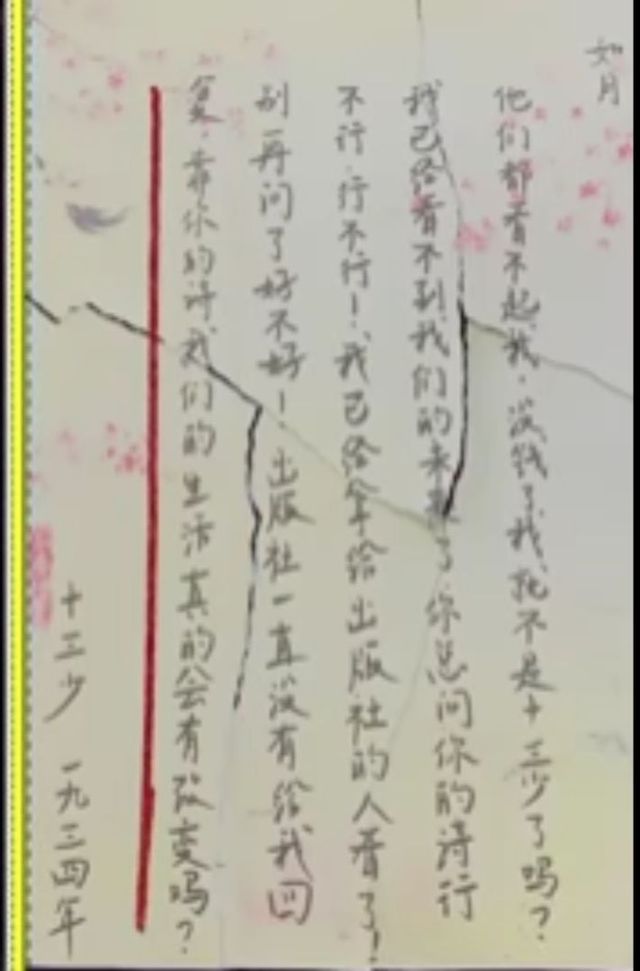 如月
他们都看不起我，没钱了我就不是十三少了吗？
我已经看不到我们的未来了，你总问你的诗行
不行，行不行！，我已给拿给出版社的人看了！
别再问了好不好！出版社一直没有给我回
复，靠你的诗我们的生活真的会有改变吗？
十三少 一九三四年